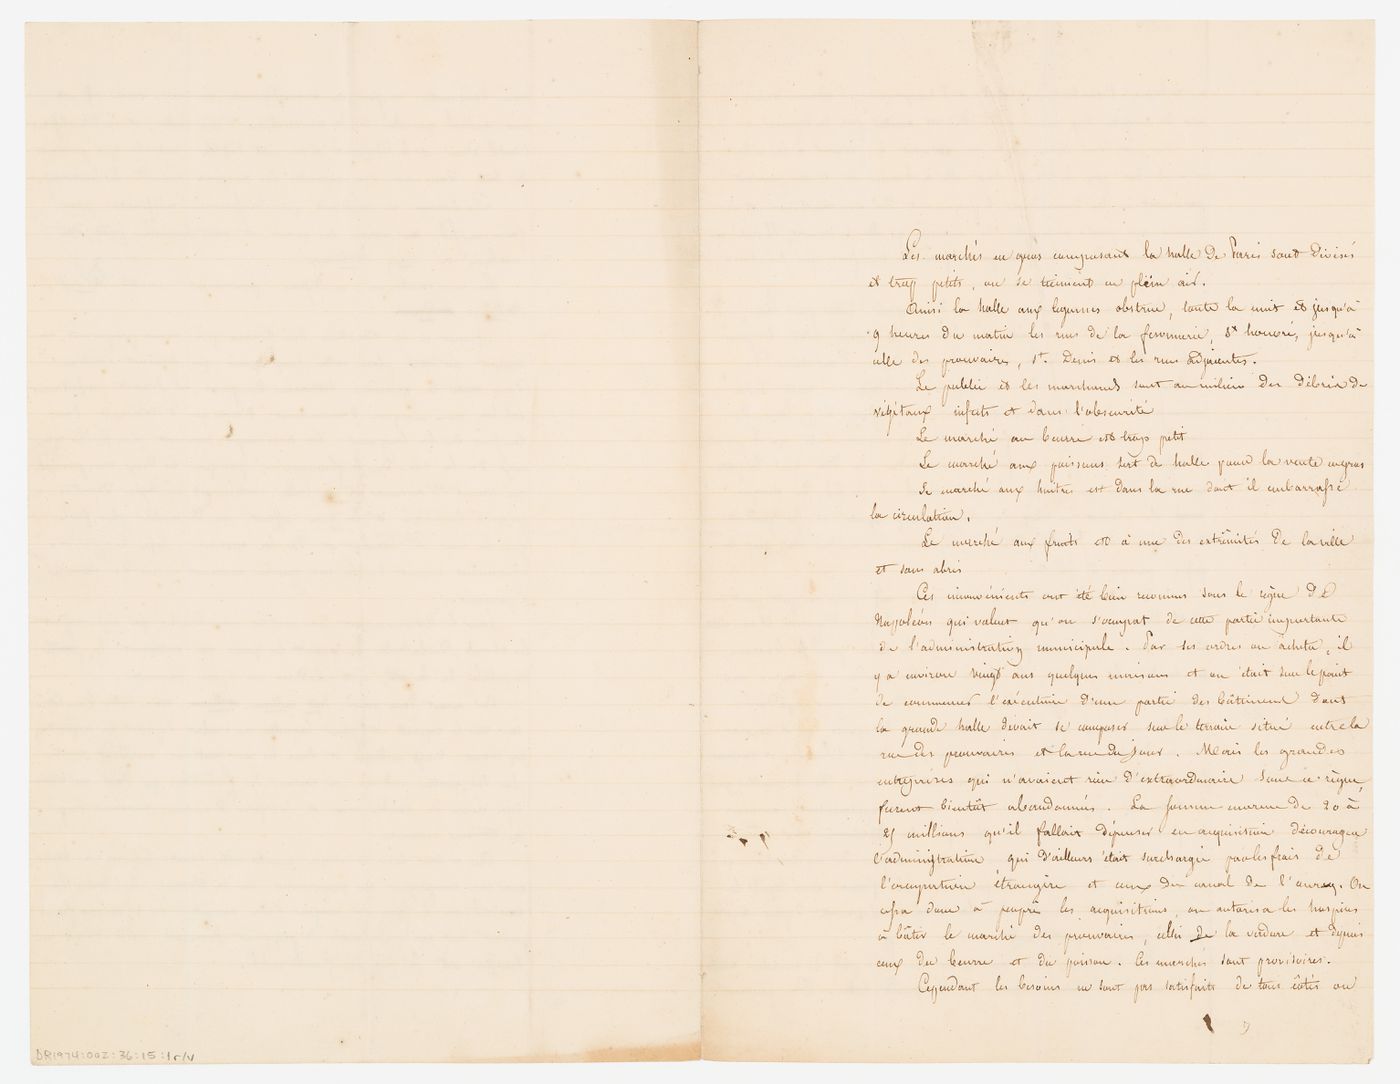 Les marchés en gros composant la halle de Paris sont divisés
et trop petits, ou se tiennent en plein air.
Ainsi la halle aux légumes obstrue, toute la nuit et jusqu'à
9 heures du matin les rues de la feronnerie, St honoré, jusqu'à
celle des prouvaires, St. Denis et les rues adjacentes.
Le public et les marchands sont au milieu des débris de
végétaux infects et dans l'obscurité
Le marché au beurre est trop petit
Le marché aux poissons sert de halle pour la vente en gros
Le marché aux huitres est dans la rue dont il embarrasse
la circulation.
Le marché aux fruits est à une des extrêmités de la ville
et sans abris
Ces inconvénients ont été bien reconnus sous le règne de
Napoléon qui voulut qu'on s'occupat de cette partie importante
de l'administration municipale. Par ses ordres on acheta, il
y a environ vingt ans quelques maisons et on était sur le point
de commencer l'exécution d'une partie des bâtiments dont
la grande halle devait se composer sur le terrain situé entre la
rue des prouvaires et la rue du Jour. Mais les grandes
entreprises qui n'avaient rien d'extraordinaire sous ce règne,
furent bientôt abandonnées. La somme énorme de 20 à
25 millions qu'il fallait dépenser en acquisition découragea
l'administration qui d'ailleurs était surchargée par les frais de
l'occupation étrangère et ceux du canal de l'ourcq. On
cessa donc à peu près les acquisitions, on autorisa les hospices
à bâtir le marché des prouvaires, celui de la verdure et depuis
ceux du beurre et du poisson. Ces marchés sont provisoires.
Cependant les besoins ne sont pas satisfaits de tous côtés on
DR1974:002:36:15:1r/v